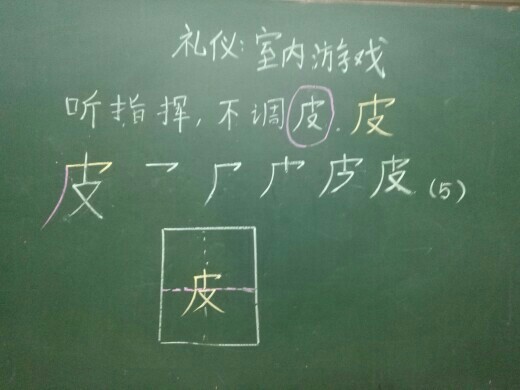 礼仪:室内游戏
听指挥,不调皮.皮
皮 皮(5)
皮